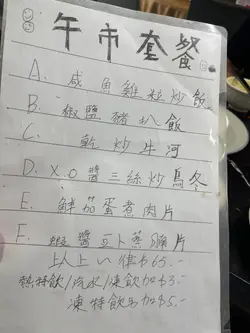 午市套餐
A. 咸魚雞粒炒飯
B. 椒鹽豬扒飯
C. 乾炒牛河
D. XO醬三絲炒烏冬
E. 鮮茄蛋煮肉片
F. 蝦醬豆卜蒸腩片
以上一律$65.-
熱特飲/汽水/凍飲加$3.-
凍特飲另加$5.-